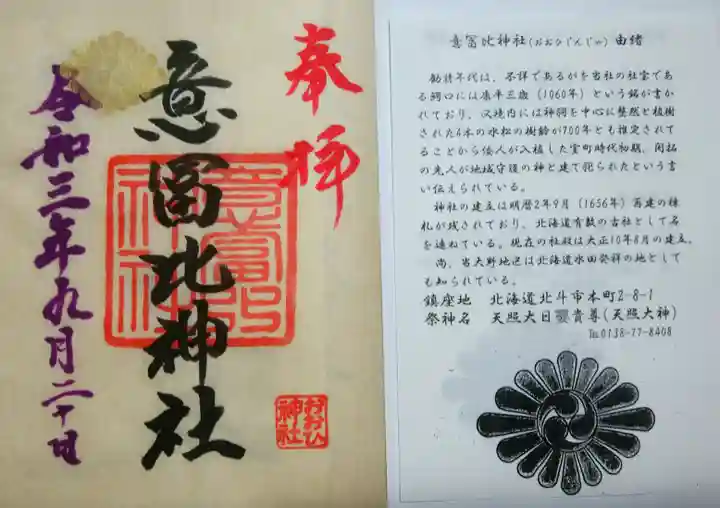 奉拝
意冨比神社
令和三年九月二十日
おおひ
神社
意冨比神社(おおひじんじゃ)由緒
勧請年代は、不詳であるが当社の社宝であ
る鰐口には康平三歳(1060年)という銘が書か
れており、又境内には神祠を中心に整然と植樹
された4本の水松の樹齢が700年とも推定されて
ることから倭人が入植した室町時代初期、開拓
の先人が地域守護の神と建て祀られたという言
い伝えられている。
神社の建立は明暦2年9月(1656年)再建の棟
札が残されており、北海道有数の古社として名
を連ねている。現在の社殿は大正10年8月の建立。
尚、当大野地区は北海道水田発祥の地として
も知られている。
鎮座地 北海道北斗市本町2-8-1
祭神名 天照大日孁貴尊(天照大神)
℡0138-77-8408